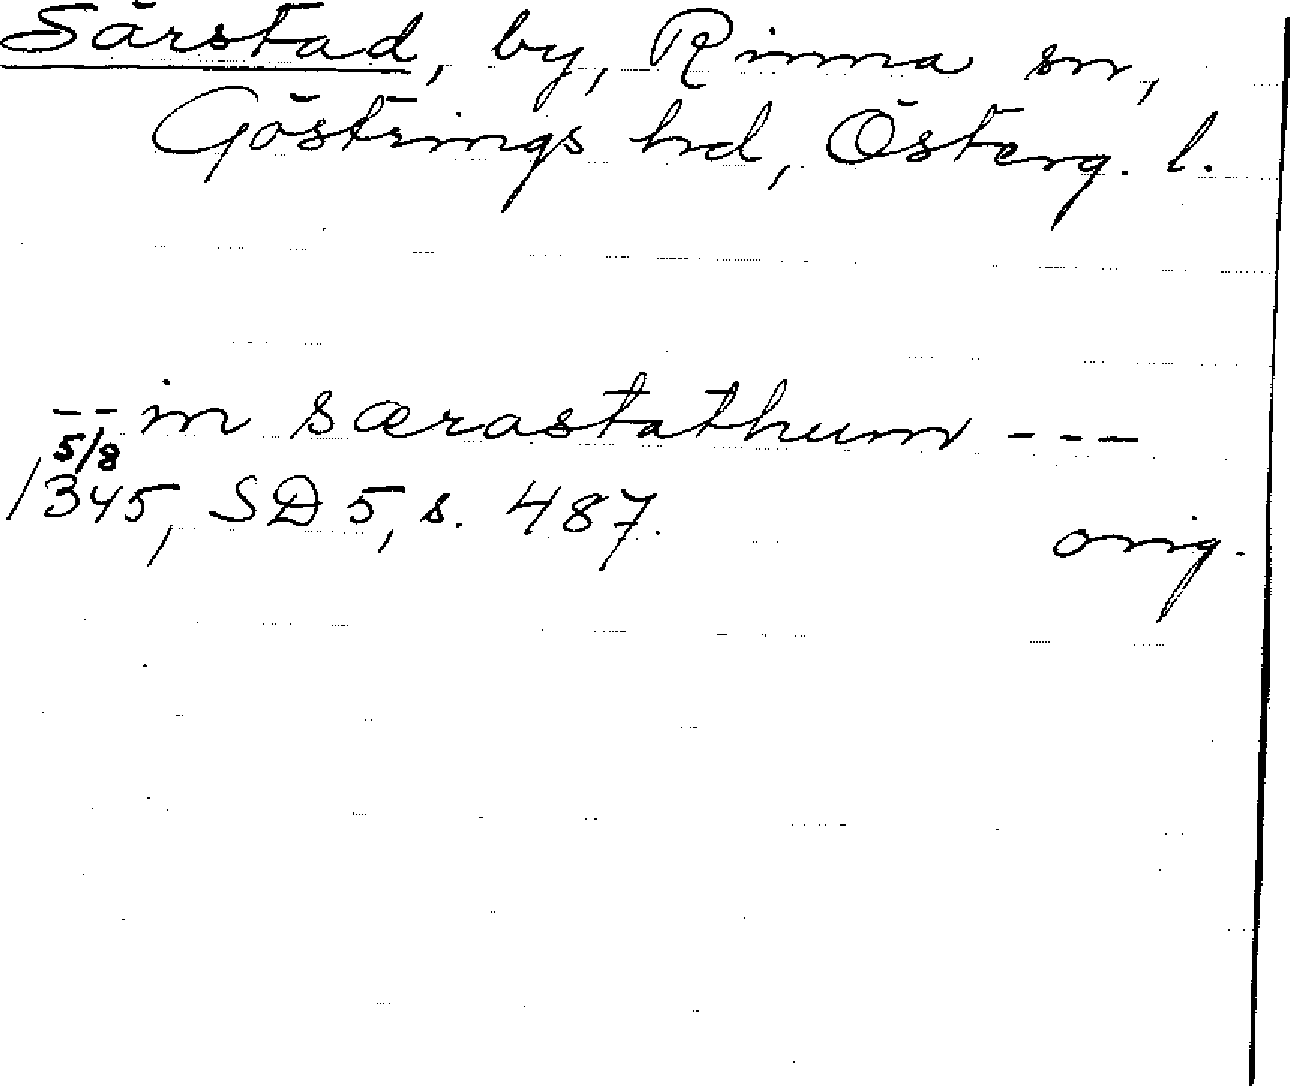 Särstad, by, Rinna sn,
Göstrings hd, Österg. l.
-- in særastathum ---
5/8
1345, SD 5, s. 487.
orig.